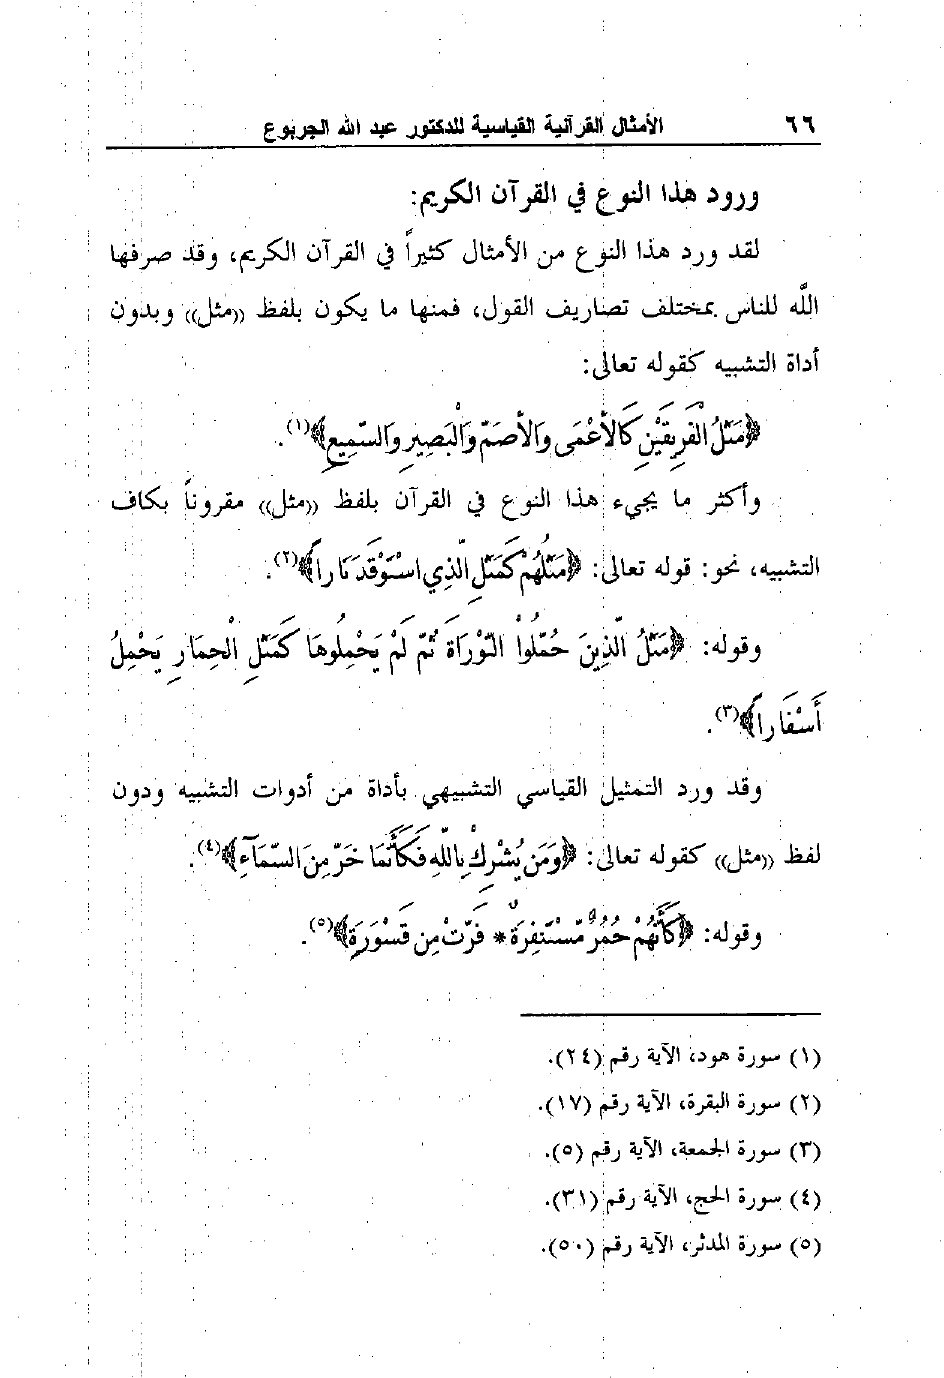 ٦٦ الأمثال القرآنية القياسية للدكتور عبد الله الجربوع
ورود هذا النوع في القرآن الكريم:
لقد ورد هذا النوع من الأمثال كثيراً في القرآن الكريم، وقد صرفها
الله للناس بمختلف تصاريف القول، فمنها ما يكون بلفظ ((مثل)) وبدون
أداة التشبيه كقوله تعالى:
﴿مَثَلُ الْفَرِيقَيْنِ كَالأَعْمَى وَالأَصَمِّ وَالْبَصِيرِ وَالسَّمِيعِ﴾(١).
وأكثر ما يجيء هذا النوع في القرآن بلفظ ((مثل)) مقروناً بكاف
التشبيه، نحو: قوله تعالى: ﴿مَثَلُهُمْ كَمَثَلِ الَّذِي اسْتَوْقَدَ نَاراً﴾(٢).
وقوله: ﴿مَثَلُ الَّذِينَ حُمِّلُواْ التَّوْرَاةَ ثُمَّ لَمْ يَحْمِلُوهَا كَمَثَلِ الْحِمَارِ يَحْمِلُ
أَسْفَاراً﴾(٣).
وقد ورد التمثيل القياسي التشبيهي بأداة من أدوات التشبيه ودون
لفظ ((مثل)) كقوله تعالى: ﴿وَمَن يُشْرِكْ بِاللَّهِ فَكَأَنَّمَا خَرَّ مِنَ السَّمَآءِ﴾(٤).
وقوله: ﴿كَأَنَّهُمْ حُمُرٌ مُّسْتَنفِرَةٌ * فَرَّتْ مِن قَسْوَرَةٍ﴾(٥).
(١) سورة هود، الآية رقم (٢٤).
(٢) سورة البقرة، الآية رقم (١٧).
(٣) سورة الجمعة، الآية رقم (٥).
(٤) سورة الحج، الآية رقم (٣١).
(٥) سورة المدثر، الآية رقم (٥٠).